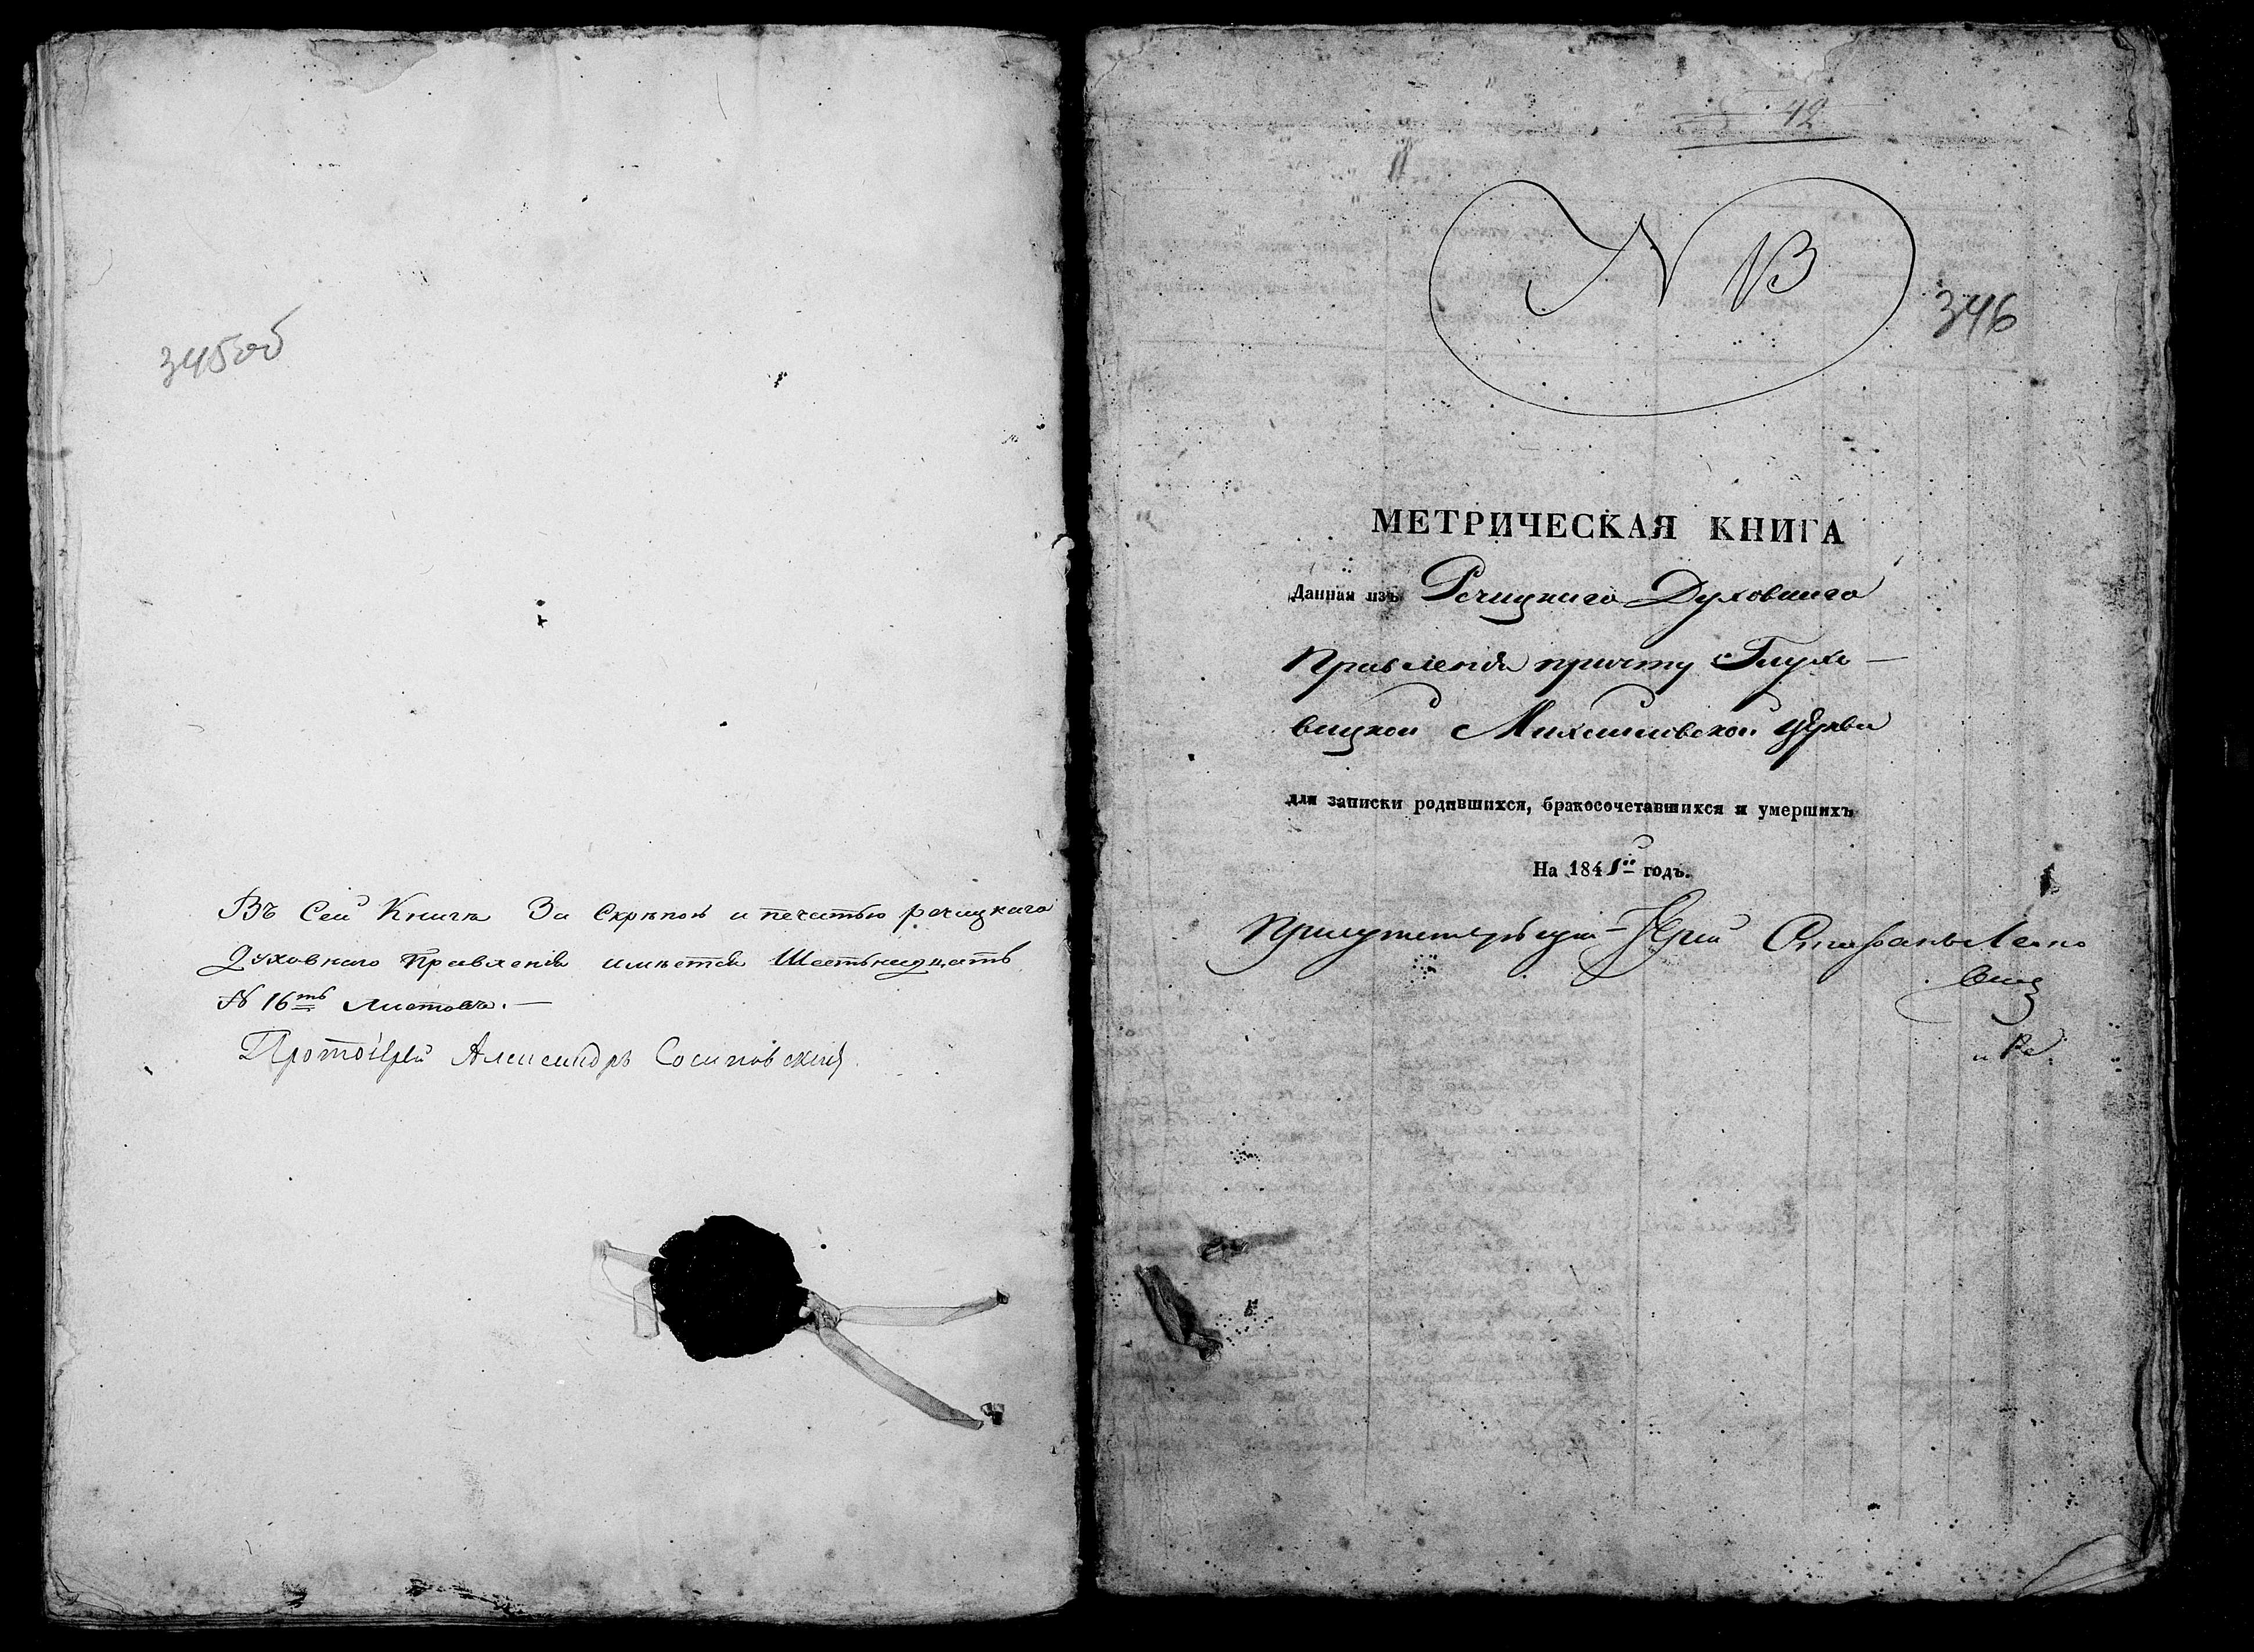 345об
Въ Сей Книгѣ За Скрѣпою и печатью речицкаго
Духовнаго Правленія имѣется Шестьнадцать
№ 16ть Листовъ. —
Протоіерей Александръ
42
NB
346
МЕТРИЧЕСКАЯ КНИГА
Данная изъ Речицкаго Духовнаго
Правленія причту Глухо—
вицкой Михайловской Церкви
для записки родившихся, бракосочетавшихся и умершихъ
На 1845й годъ.
Присутствующій Іерей Стефанъ